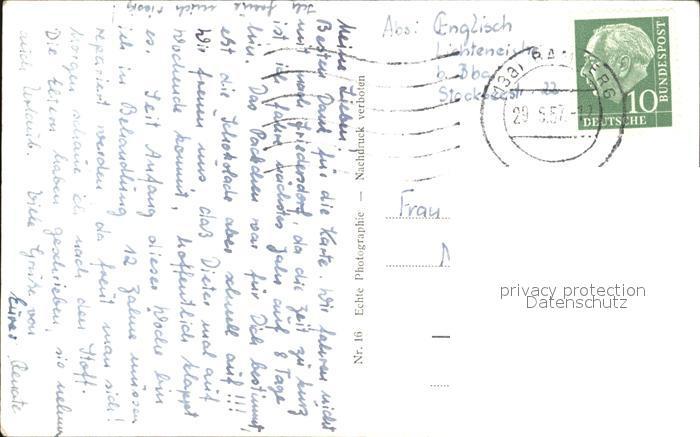 Ich freue mich schon
Meine Lieben!
Besten Dank für die Karte. Wir fahren nicht
mit nach Friedersdorf, da die Zeit zu kurz
ist. Wir fahren nächstes Jahr auf 8 Tage
hin. Das Päckchen war für Dich bestimmt,
eßt die Schokolade aber schnell auf!!!
Wir freuen uns, daß Dieter mal auf
Wochende kommt, hoffentlich klappt
es. Seit Anfang dieser Woche bin
ich in Behandlung, 12 Zähne müssen
repariert werden, da freut man sich!
Morgen schaue ich nach den Stoff.
Die Eltern haben geschrieben, sie nehmen
auch Urlaub. Viele Grüße von
Eurer Renate
Nr. 16 Echte Photographie — Nachdruck verboten
Abs: Englisch
Lichteneiche
b. Bbg.
Stockseestr. 22
(13a) BAMBERG
29.8.57.-17
10
DEUTSCHE
BUNDESPOST
Frau
privacy protection
Datenschutz